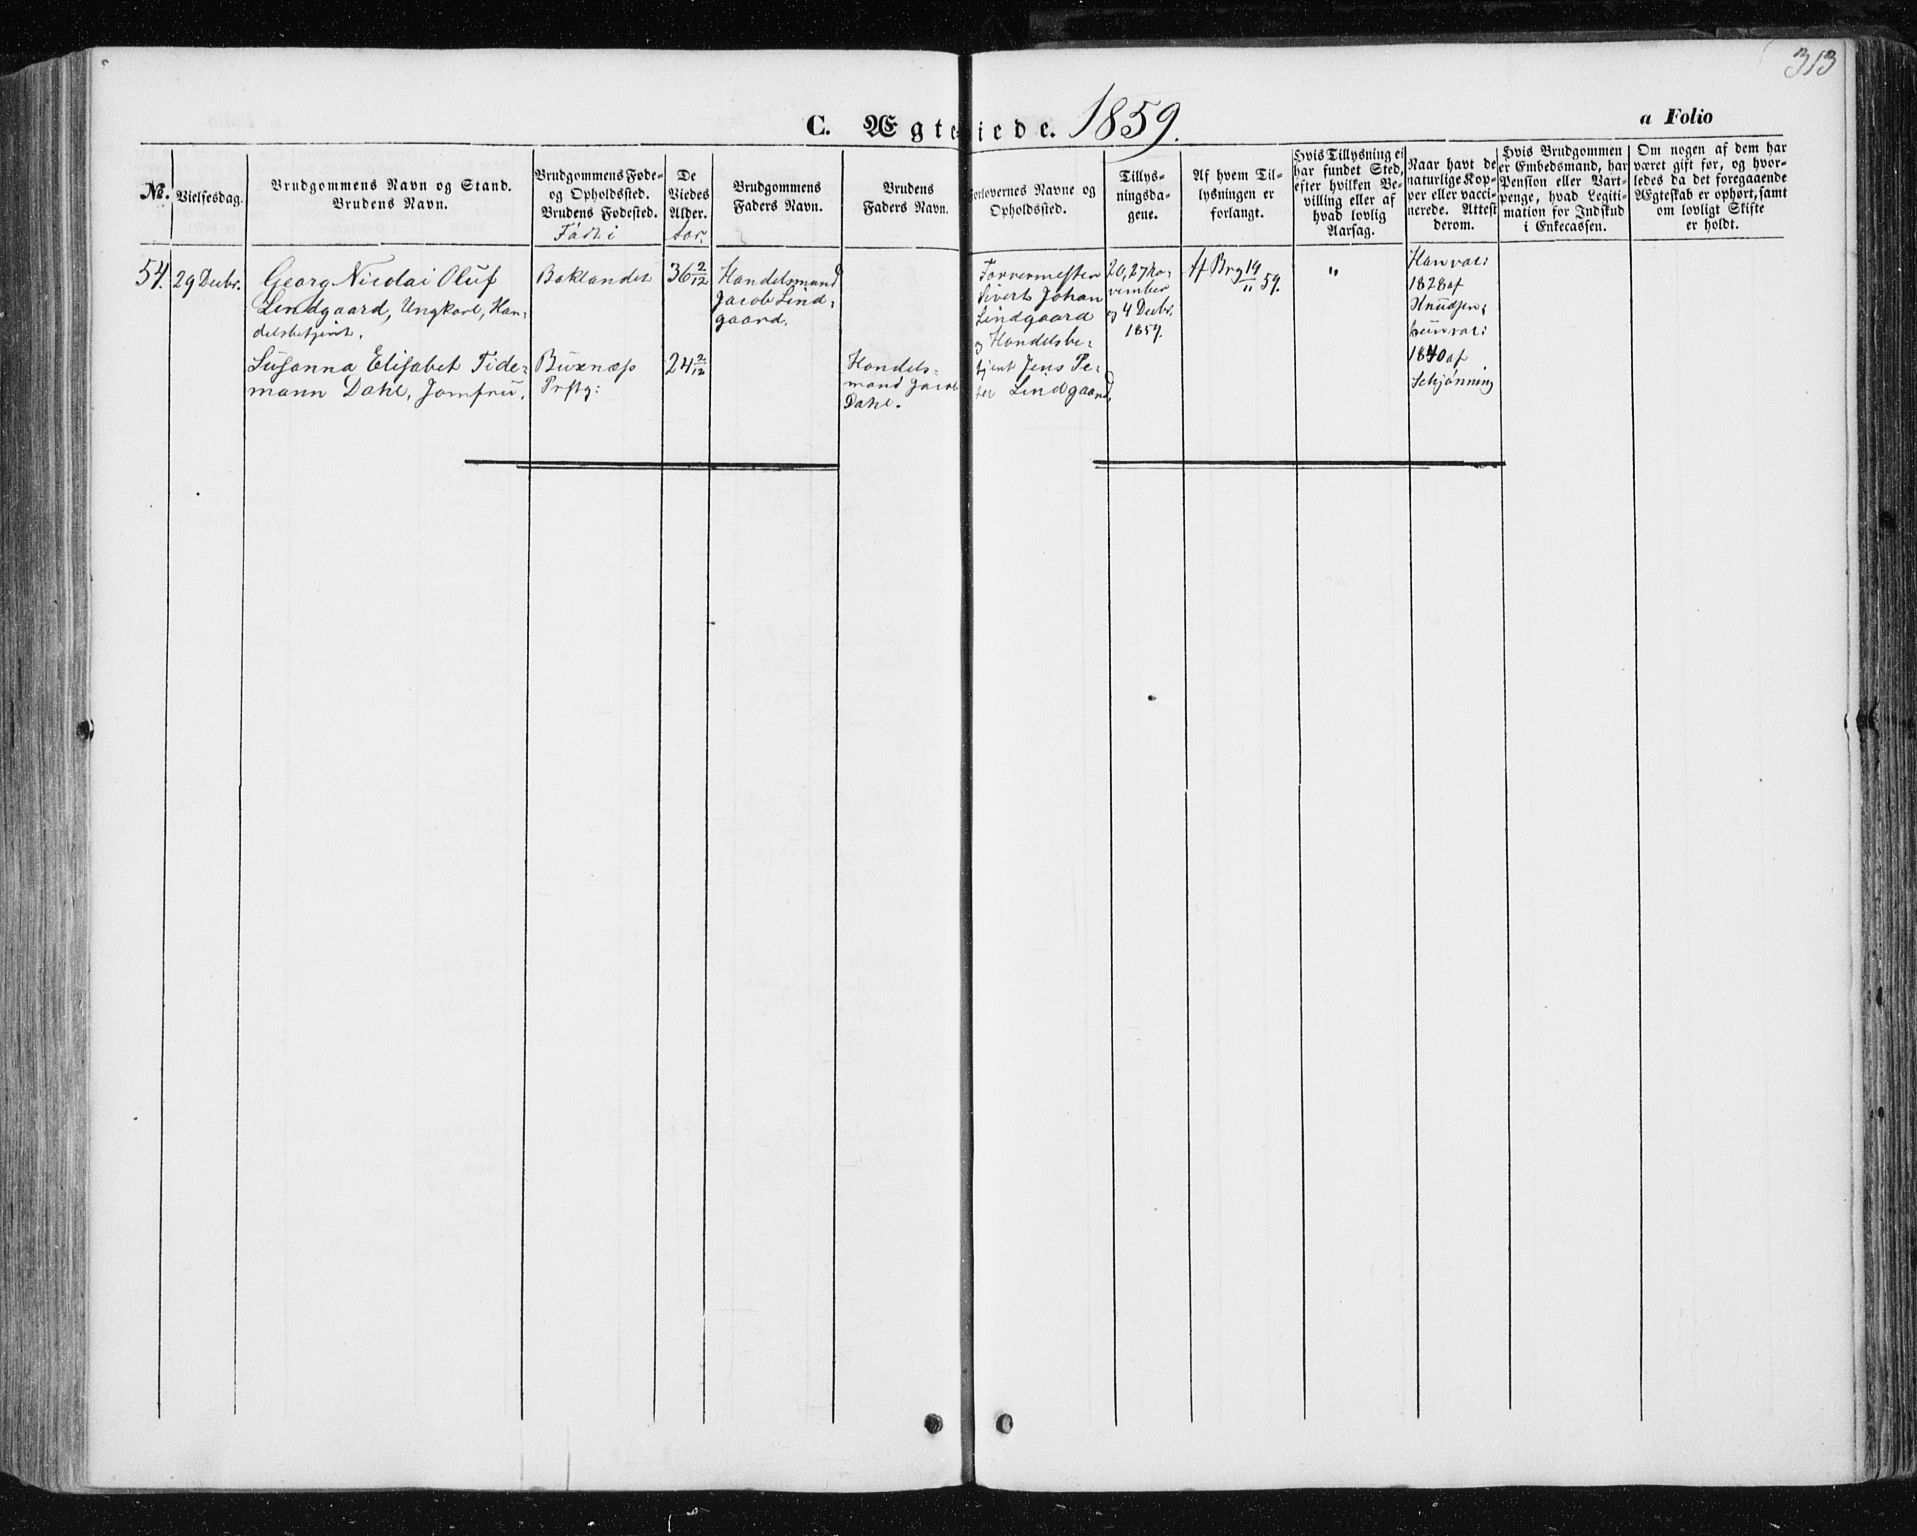 313
C. Ægteviede. 1859.
a Folio
No.
Vielsesdag.
Brudgommens Navn og Stand.
Brudens Navn.
Brudgommens Føde-
og Opholdssted.
Brudens Fødested.
Född i
De
Viedes
Alder.
Aar.
Brudgommens
Faders Navn.
Brudens
Faders Navn.
Forlovernes Navne og
Opholdssted.
Tillys-
ningsda-
gene.
Af hvem Til-
lysningen er
forlangt.
Hvis Tillysning ei
har fundet Sted,
efter hvilken Be-
villing eller af
hvad lovlig
Aarsag.
Naar havt de
naturlige Kop-
per eller vacci-
nerede. Attest
derom.
Hvis Brudgommen
er Embedsmand, har
Pension eller Vart-
penge, hvad Legiti-
mation for Indskud
i Enkecassen.
Om nogen af dem har
været gift før, og hvor-
ledes da det foregaaende
Ægteskab er ophørt, samt
om lovligt Skifte
er holdt.
54.
29 Decbr.
Georg Nicolai Oluf
Lindgaard, Ungkarl, Han-
delsbetjent.
Susanna Elisabet Tide-
mann Dahl, Jomfru.
Baklandet
Buxnæs
Prstg:
36 2/12
24 2/12
Handelsmand
Jacob Lind-
gaard.
Handels-
mand Jacob
Dahl.
Farvermester
Sivert Johan
Lindgaard
og Handelsbe-
tjent Jens Pe-
ter Lindgaard.
20, 27 No-
vember
og 4 Decbr.
1859.
Af Brg 19/11 59.
"
Han vac:
1828 af
Knudsen;
hun vac:
1840 af
Schjønning